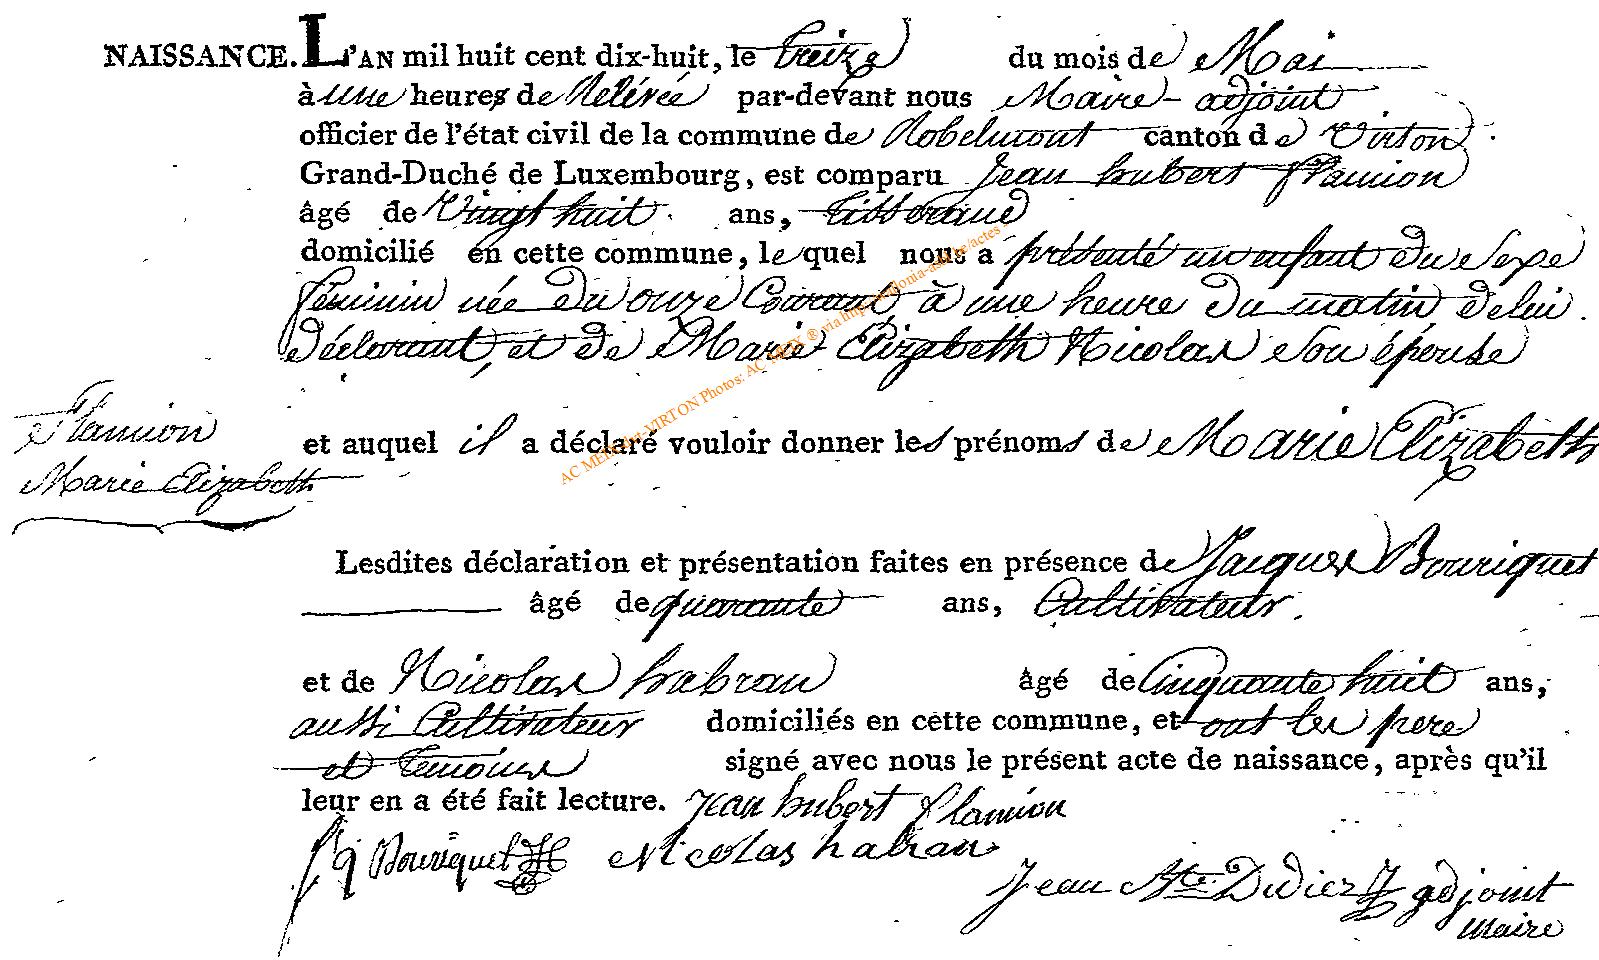 NAISSANCE. L'AN mil huit cent dix-huit, le treize du mois de Mai
à une heures de Relevée par-devant nous Maire-adjoint
officier de l'état civil de la commune de Robelmont canton de Virton
Grand-Duché de Luxembourg, est comparu Jean hubert Flamion
âgé de Vingt huit ans, tisserand
domicilié en cette commune, lequel nous a présenté un enfant du Sexe
féminin née du onze Courant, à une heure du matin de lui
déclarant, et de Marie Elizabeth Nicolas Son épouse
Flamion
Marie Elizabeth
et auquel il a déclaré vouloir donner les prénoms de Marie Elizabeth
Lesdites déclaration et présentation faites en présence de Jacques Bouriquet
âgé de quarante ans, Cultivateur.
et de Nicolas habran âgé de Cinquante huit ans,
aussi Cultivateur domiciliés en cette commune, et ont les père
et temoins signé avec nous le présent acte de naissance, après qu'il
leur en a été fait lecture. Jean hubert flamion
Bouriquet Nicolas habran
Jean Didier adjoint
maire